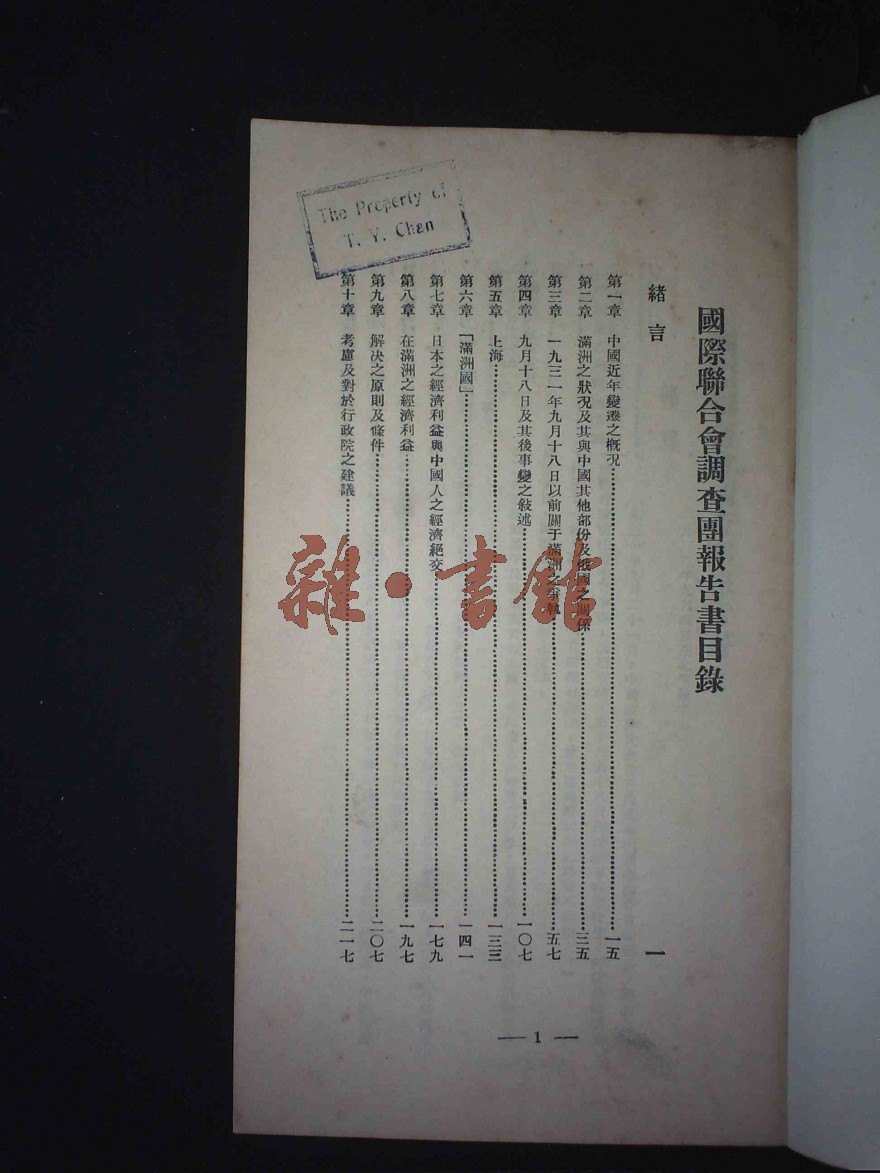 國際聯合會調查團報告書目錄
緒言 一
第一章 中國近年變遷之概況 一五
第二章 滿洲之狀況及其與中國其他部份及俄國之關係 三五
第三章 一九三一年九月十八日以前關于滿洲之爭執 五七
第四章 九月十八日及其後事變之敍述 一〇七
第五章 上海 一三三
第六章 「滿洲國」 一四一
第七章 日本之經濟利益與中國人之經濟絕交 一七九
第八章 在滿洲之經濟利益 一九七
第九章 解決之原則及條件 二〇七
第十章 考慮及對於行政院之建議 二一七
The Property of
T. Y. Chan
雜·書館
— 1 —